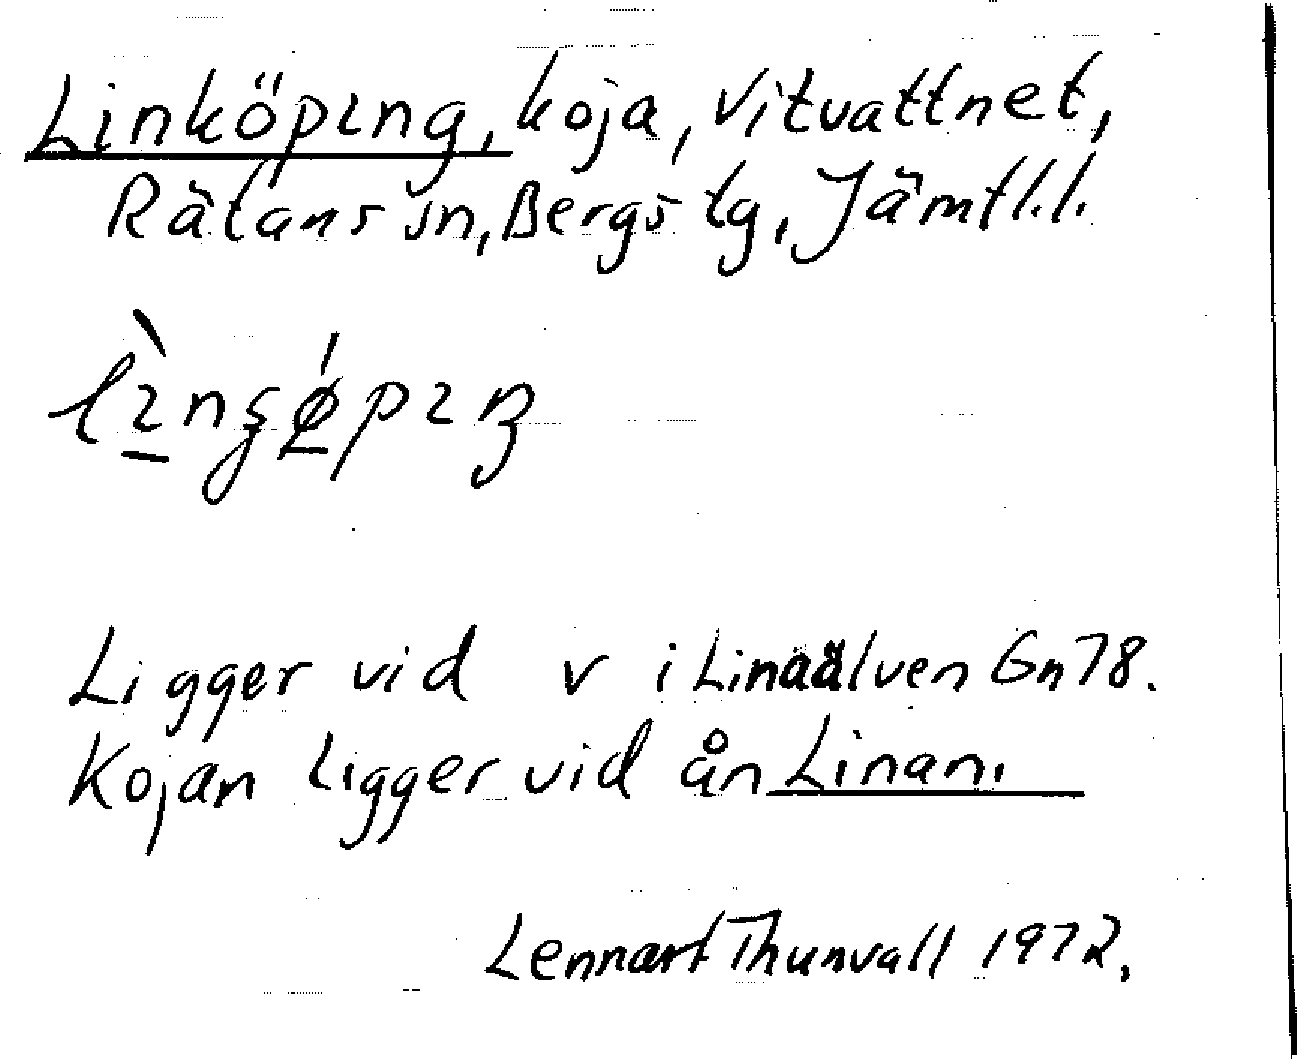 Linköping, koja, Vitvattnet,
Rätans sn, Bergs tg, Jämtl.l.
Ligger vid v i Linaälven Gn78.
Kojan ligger vid ån Linan.
Lennart Thunvall 1972.